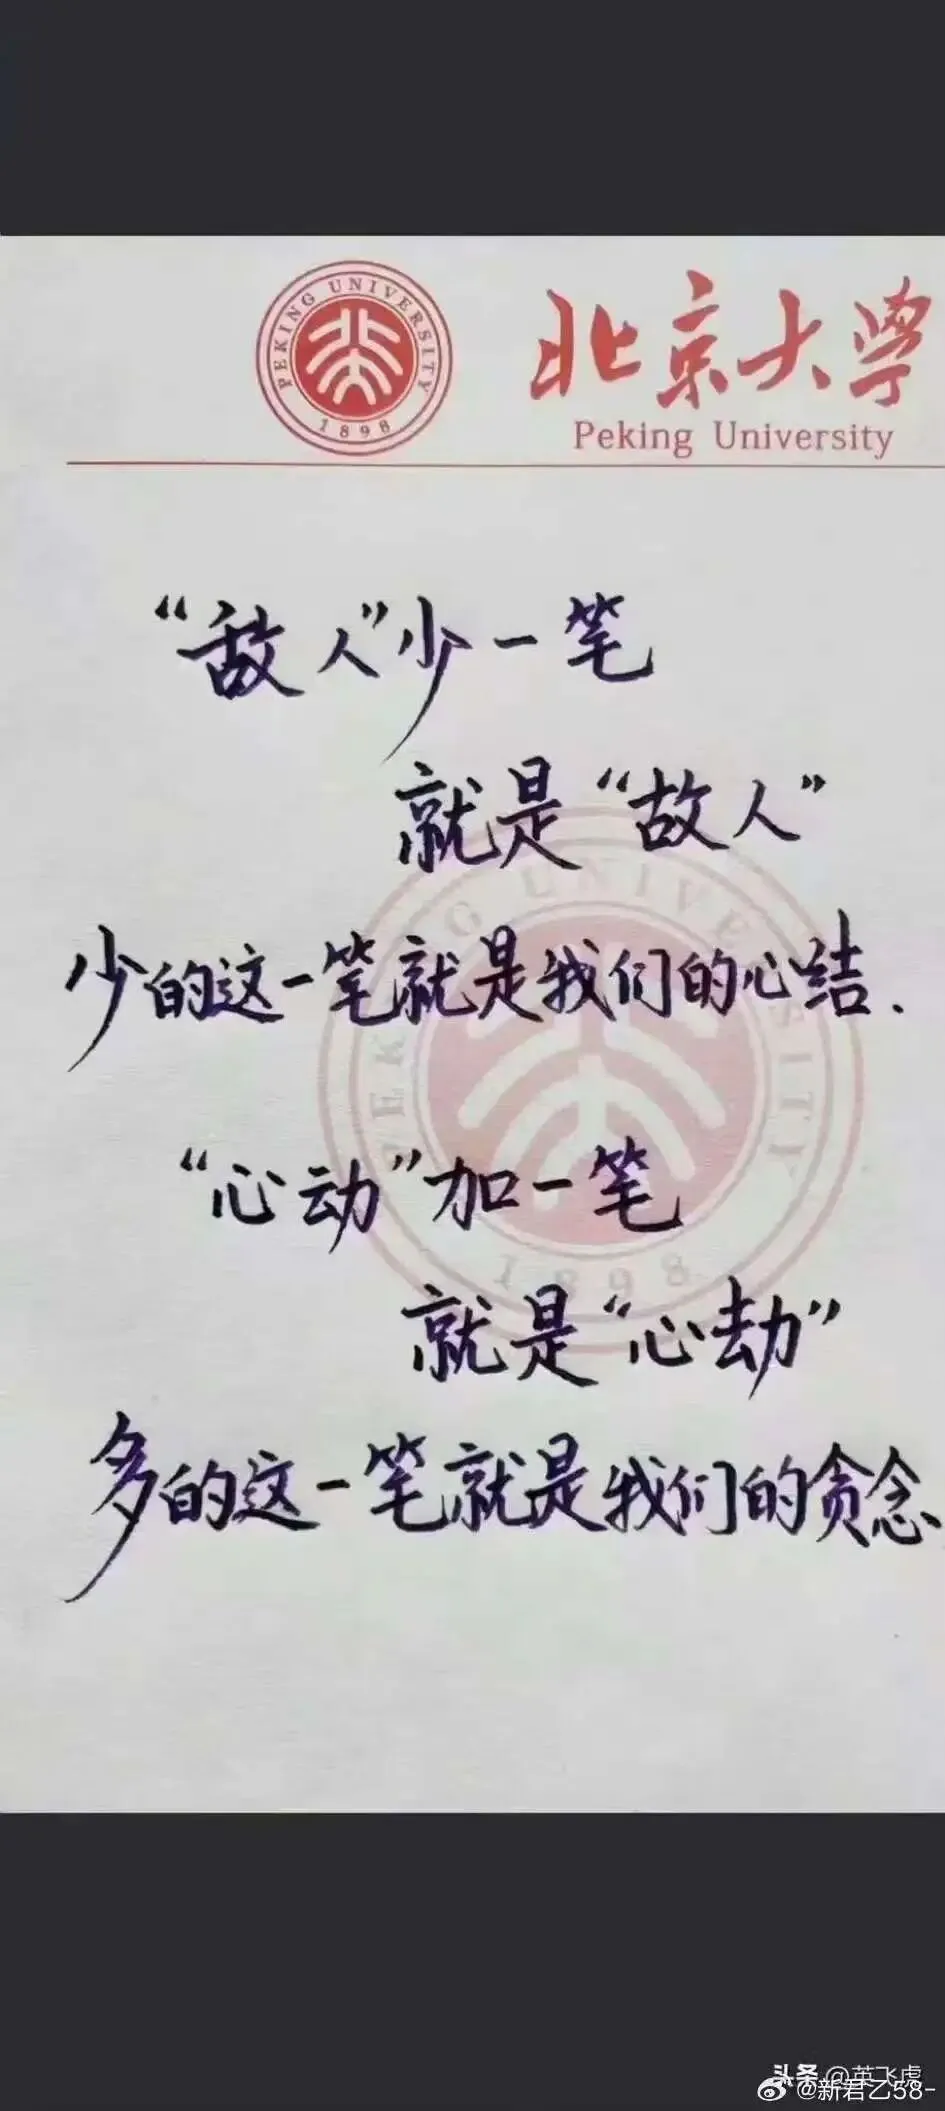 PEKING UNIVERSITY
1898
北京大学
Peking University
“敌人”少一笔
就是“故人”
少的这一笔就是我们的心结.
“心动”加一笔
就是“心劫”
多的这一笔就是我们的贪念.
PEKING UNIVERSITY
1898
头条 @英飞虎
@新君乙58-